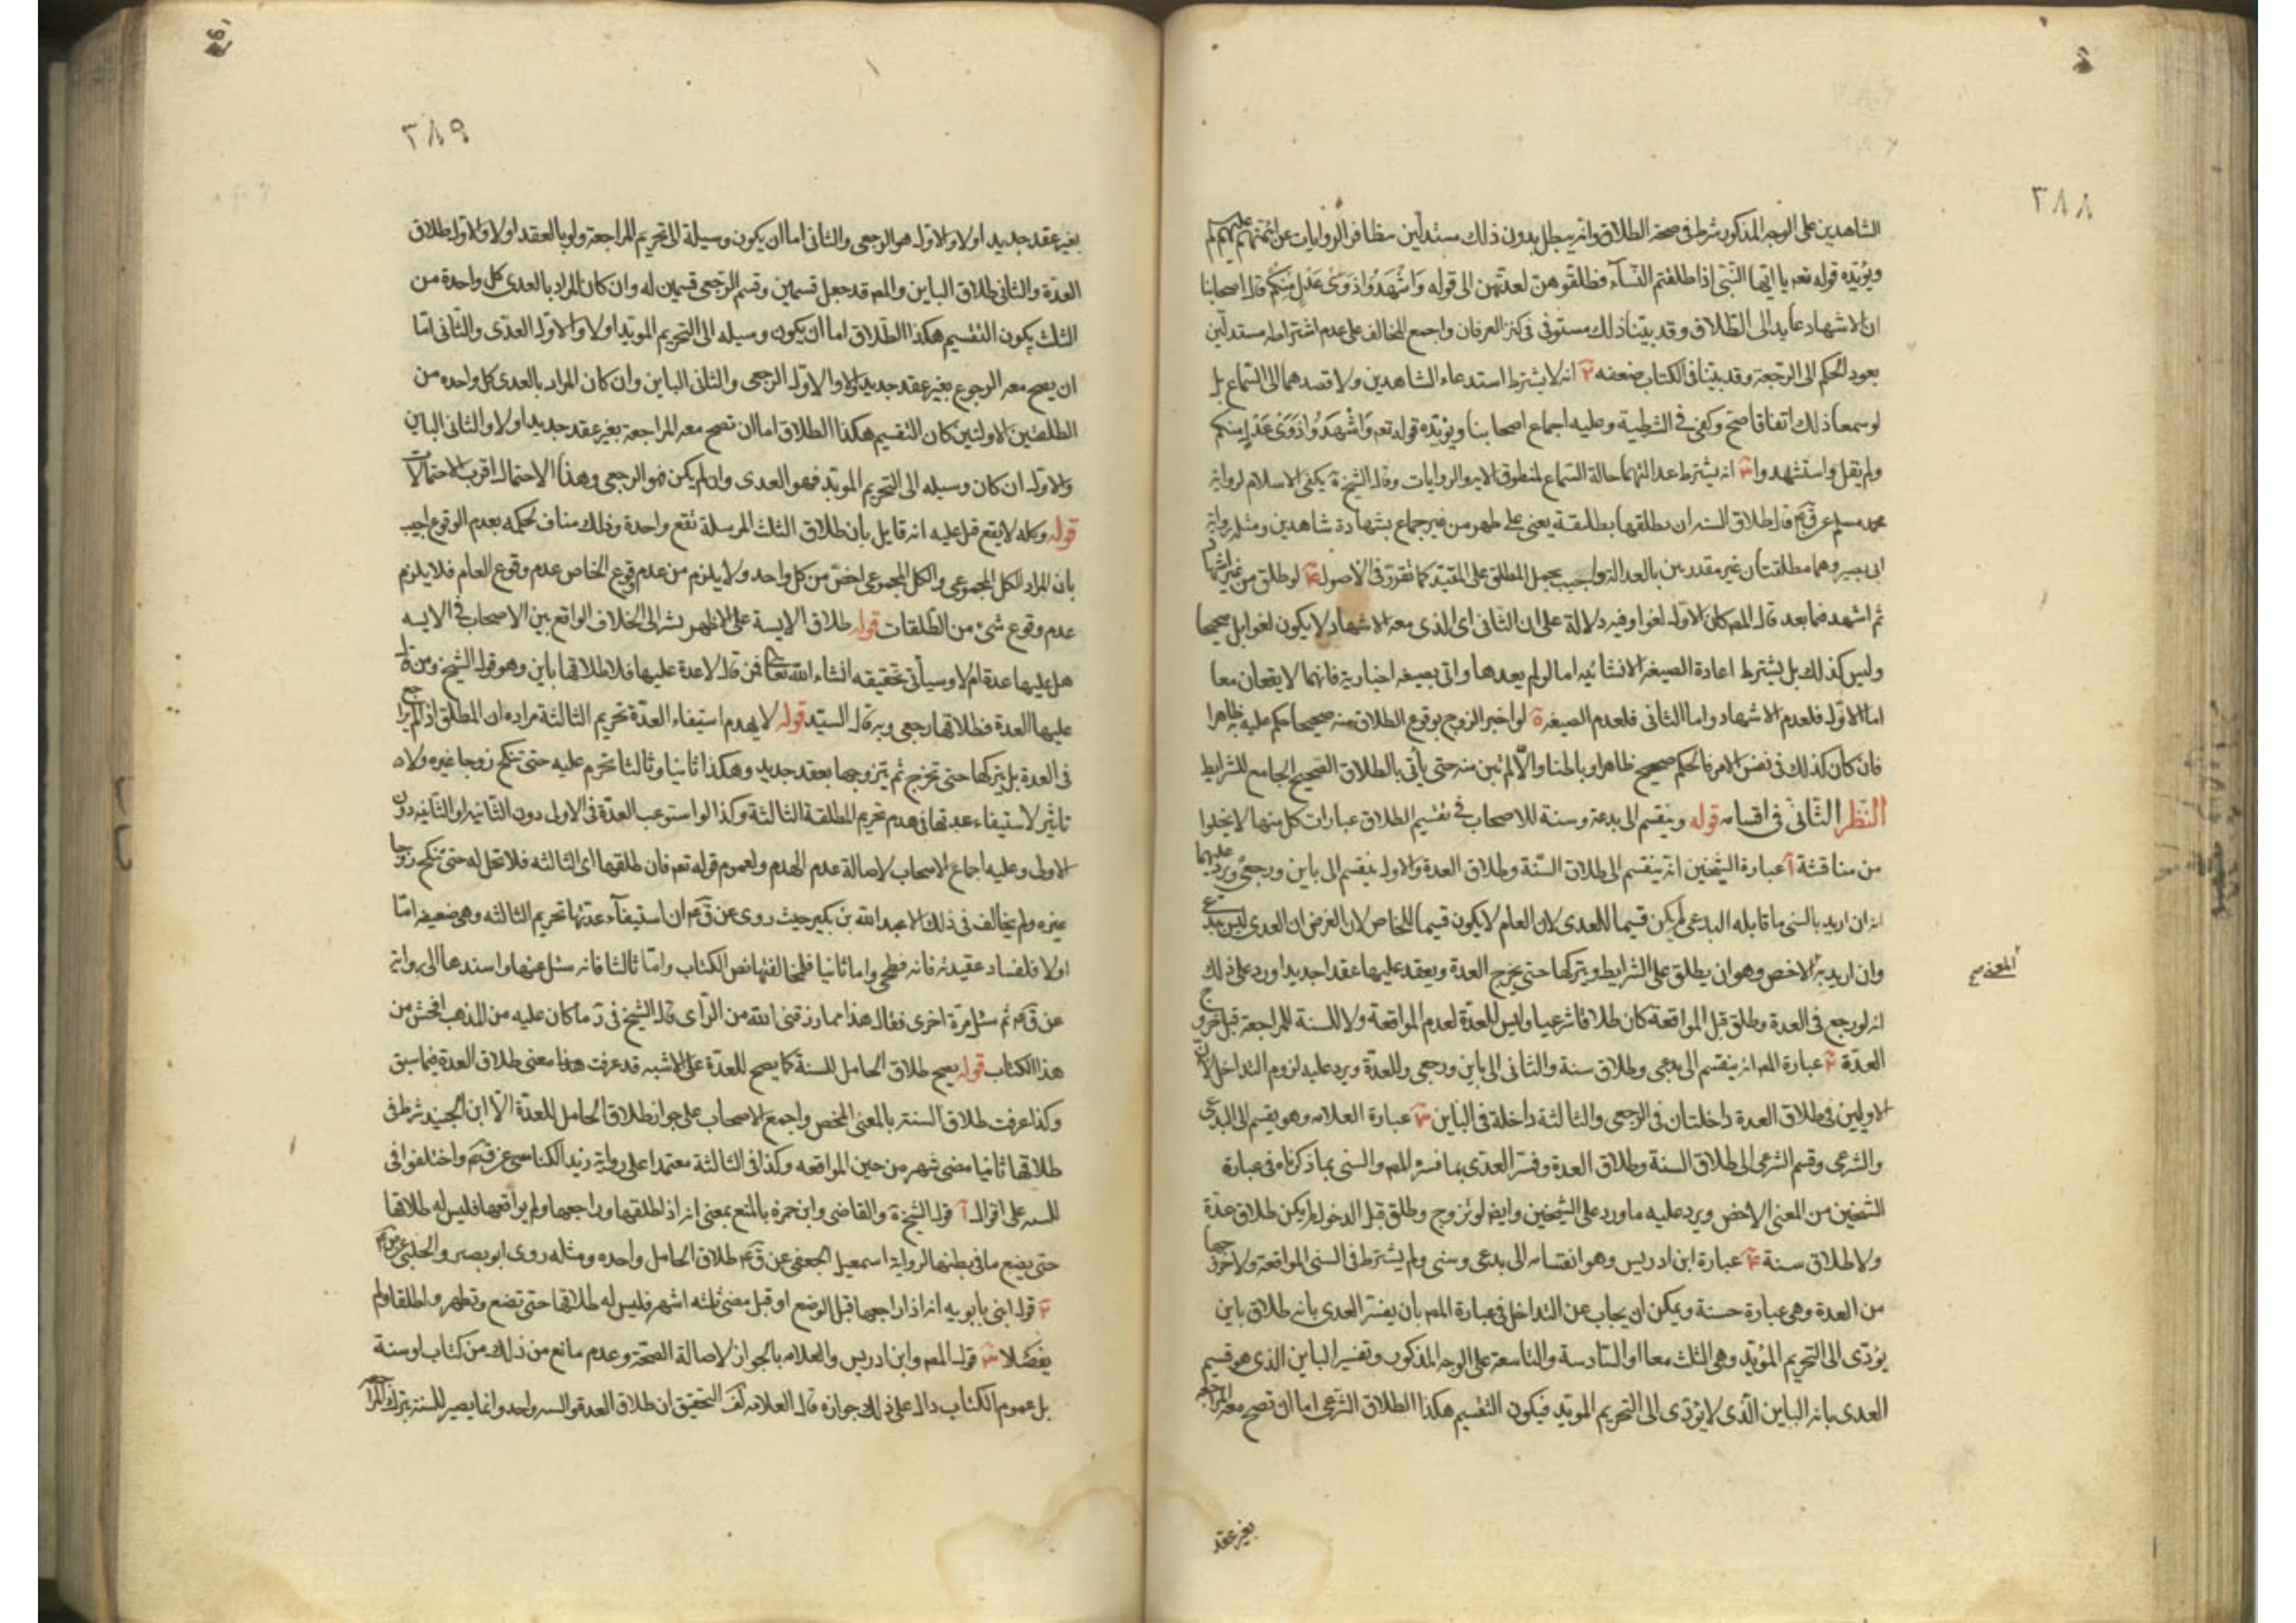 ٣٨٨
الشاهدين على الوجه المذكور شرط في صحة الطلاق وانه يبطل بدون ذلك مستدلين بتظافر الروايات عن ائمتهم عليهم السلم
ويؤيده قوله تعه يا ايها النبي اذا طلقتم النسآء فطلقوهن لعدتهن الى قوله واشهدوا ذوى عدل منكم قال اصحابنا
ان الاشهاد عايد الى الطلاق وقد بينا ذلك مستوفى في كنز العرفان واجمع المخالف على عدم اشتراطه مستدلين
بعود الحكم الى الرجعة وقد بينا في الكتاب ضعفه ٢ انه لا يشترط استدعاء الشاهدين ولا قصدهما الى السماع بل
لو سمعا ذلك اتفاقا صح وكفى في الشرطية وعليه اجماع اصحابنا ويؤيده قوله تعه واشهدوا ذوى عدل منكم
ولم يقل واستشهدوا ٣ انه يشترط عدالتهما حالة السماع لمنطوق الايه والروايات وقال الشيخ في ية يكفى الاسلام لرواية
محمد مسلم عن ق ع قال طلاق السنه ان يطلقها بطلقة يعنى على طهر من غير جماع بشهادة شاهدين ومثله رواية
ابى بصير وهما مطلقتان غير مقيدين بالعدالة واجيب بحمل المطلق على المقيد كما تقرر في الاصول ٤ لو طلق من غير اشهاد
ثم اشهد فما بعد قال المص كان الاول لغوا وفيه دلالة على ان الثانى اى الذى معه الاشهاد لا يكون لغوا بل صحيحا
وليس كذلك بل يشترط اعادة الصيغه الانشائيه اما لو لم يعدها واتى بصيغه اخبارية فانهما لا يقعان معا
اما الاول فلعدم الاشهاد واما الثانى فلعدم الصيغه ٥ لو اخبر الزوج بوقوع الطلاق منه صحيحا حكم عليه به ظاهرا
فان كان كذلك في نفس الامر فالحكم صحيح ظاهرا وباطنا والا لم تبن منه حتى يأتى بالطلاق الصحيح الجامع للشرايط
النظر الثانى في اقسامه قوله وينقسم الى بدعة وسنة للاصحاب في تقسيم الطلاق عبارات كل منها لا يخلوا
من مناقشة آ عبارة الشيخين انه ينقسم الى طلاق السنة وطلاق العدة والاول ينقسم الى باين ورجعى ويرد عليهما
انه ان اريد بالسنى ما قابله البدعى لم يكن قسيما للعدى لان العام لا يكون قسيما للخاص لان الفرض ان العدى ليس ببدعى
وان اريد به الاخص وهو ان يطلق على الشرايط ويتركها حتى يخرج العدة ويعقد عليها عقدا جديدا ورد على ذلك
المعنى صح
انه لو رجع في العدة وطلق قبل المواقعة كان طلاقا شرعيا وليس للعدة لعدم المواقعة ولا للسنة للمراجعة قبل خروج
العدة ٢ عبارة المص انه ينقسم الى بدعى وطلاق سنة والثانى الى باين ورجعى وللعدة ويرد عليه لزوم التداخل لان
الاوليين في طلاق العدة داخلتان في الرجعى والثالثة داخلة في الباين ٣ عبارة العلامه وهو يقسم الى البدعى
والشرعى وقسم الشرعى الى طلاق السنة وطلاق العدة وفسر العدى بما فسره المص والسنى بما ذكرناه في عبارة
الشيخين من المعنى الاخص ويرد عليه ما ورد على الشيخين وايضا لو تزوج وطلق قبل الدخول لم يكن طلاق عدة
ولا طلاق سنة ٤ عبارة ابن ادريس وهو انقسامه الى بدعى وسنى ولم يشترط في السنى المواقعة ولا خروجها
من العدة وهى عبارة حسنة ويمكن ان يجاب عن التداخل في عبارة المص بان يفسر العدى بانه طلاق باين
يؤدى الى التحريم المؤبد وهى الثلث معا او السادسة والتاسعة على الوجه المذكور وتفسير الباين الذى هو قسيم
العدى بانه الباين الذى لا يؤدى الى التحريم الموبد فيكون التقسيم هكذا الطلاق الشرعى اما ان تصح معه المراجعه
بغير عقد
٣٨٩
بغير عقد جديد اولا والاول هو الرجعى والثانى اما ان يكون وسيلة الى تحريم المراجعة ولو بالعقد اولا والاول طلاق
العدة والثانى طلاق الباين والمص قد جعل قسمين وقسم الرجعى قسمين له وان كان المراد بالعدى كل واحدة من
الثلث يكون التقسيم هكذا الطلاق اما ان يكون وسيله الى التحريم الموبد اولا والاول العدى والثانى اما
ان يصح معه الرجوع بغير عقد جديد اولا والاول الرجعى والثانى الباين وان كان المراد بالعدى كل واحده من
الطلقتين الاولتين كان التقسيم هكذا الطلاق اما ان تصح معه المراجعة بغير عقد جديد اولا والثانى الباين
والاول ان كان وسيله الى التحريم الموبد فهو العدى وان لم يكن فهو الرجعى وهذا الاحتمال اقرب الاحتمالات
قوله وكله لا يقع قيل عليه انه قايل بان طلاق الثلث المرسلة تقع واحدة وذلك مناف لحكمه بعدم الوقوع اجيب
بان المراد الكل المجموعى والكل المجموعى اخص من كل واحد ولا يلزم من عدم وقوع الخاص عدم وقوع العام فلا يلزم
عدم وقوع شىء من الطلقات قوله طلاق الايسة على الاظهر يشر الى الخلاف الواقع بين الاصحاب في الايسه
هل عليها عدة ام لا وسيأتى تحقيقه انشاء الله تعالى فمن قال لا عدة عليها فلا طلاقها باين وهو قول الشيخ ومن قال
عليها العدة فطلاقها رجعى وبه قال السيد قوله لا يهدم استيفاء العدة تحريم الثالثة مراده ان المطلق اذا لم يراجع
في العدة بل يتركها حتى تخرج ثم يتزوجها بعقد جديد وهكذا ثانيا وثالثا تحرم عليه حتى تنكح زوجا غيره ولا
تاثير لاستيفاء عدتها في هدم تحريم المطلقة الثالثة وكذا لو استوعب العدة في الاول دون الثانيه او الثانيه دون
الاولى وعليه اجماع الاصحاب لاصالة عدم الهدم ولعموم قوله تعه فان طلقها اى الثالثه فلا تحل له حتى تنكح زوجا
غيره ولم يخالف في ذلك الا عبد الله بن بكير حيث روى عن ق ع ان استيفآء عدتها تحريم الثالثه وهى ضعيفه اما
اولا فلفساد عقيدته فانه فطحى واما ثانيا فلمخالفتها نص الكتاب واما ثالثا فانه سئل عنها واسندها الى رواية
عن ق ع ثم سئل مرة اخرى فقال هذا مما رزقنى الله من الراى قال الشيخ في ر ما كان عليه من المذهب افحش من
هذا الكتاب قوله يصح طلاق الحامل للسنة كما يصح للعدة على الاشبه قد عرفت معنى طلاق العدة فيما سبق
وكذا عرفت طلاق السنة بالمعنى الاخص واجمع الاصحاب على جواز طلاق الحامل للعدة الا ابن الجنيد شرط في
طلاقها ثانيا مضى شهر من حين المواقعه وكذا في الثالثة معتمدا على رواية زيد الكناسى عن ق ع واختلفوا في
للسنه على اقوال آ قول الشيخ في ية والقاضى وابن حمزه بالمنع بمعنى انه اذا طلقها وراجعها ولم يواقعها فليس له طلاقها
حتى يضع ما في بطنها لرواية اسمعيل الجعفى عن ق ع طلاق الحامل واحده ومثله روى ابو بصير والحلبى عن ق ع
٢ قول ابنى بابويه انه اذا راجعها قبل الوضع او قبل مضى ثلثه اشهر فليس له طلاقها حتى تضع وتطهر واطلقا ولم
يفصلا ٣ قول المص وابن ادريس والعلامه بالجواز لاصالة الصحة وعدم مانع من ذلك من كتاب او سنة
بل عموم الكتاب دال على ذلك جوازه قال العلامه في لف التحقيق ان طلاق العدة والسنه واحد وانما يصير للسنة بترك